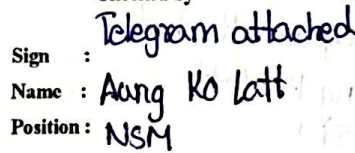 Telegram attached
Sign :
Name : Aung Ko Latt
Position : NSM